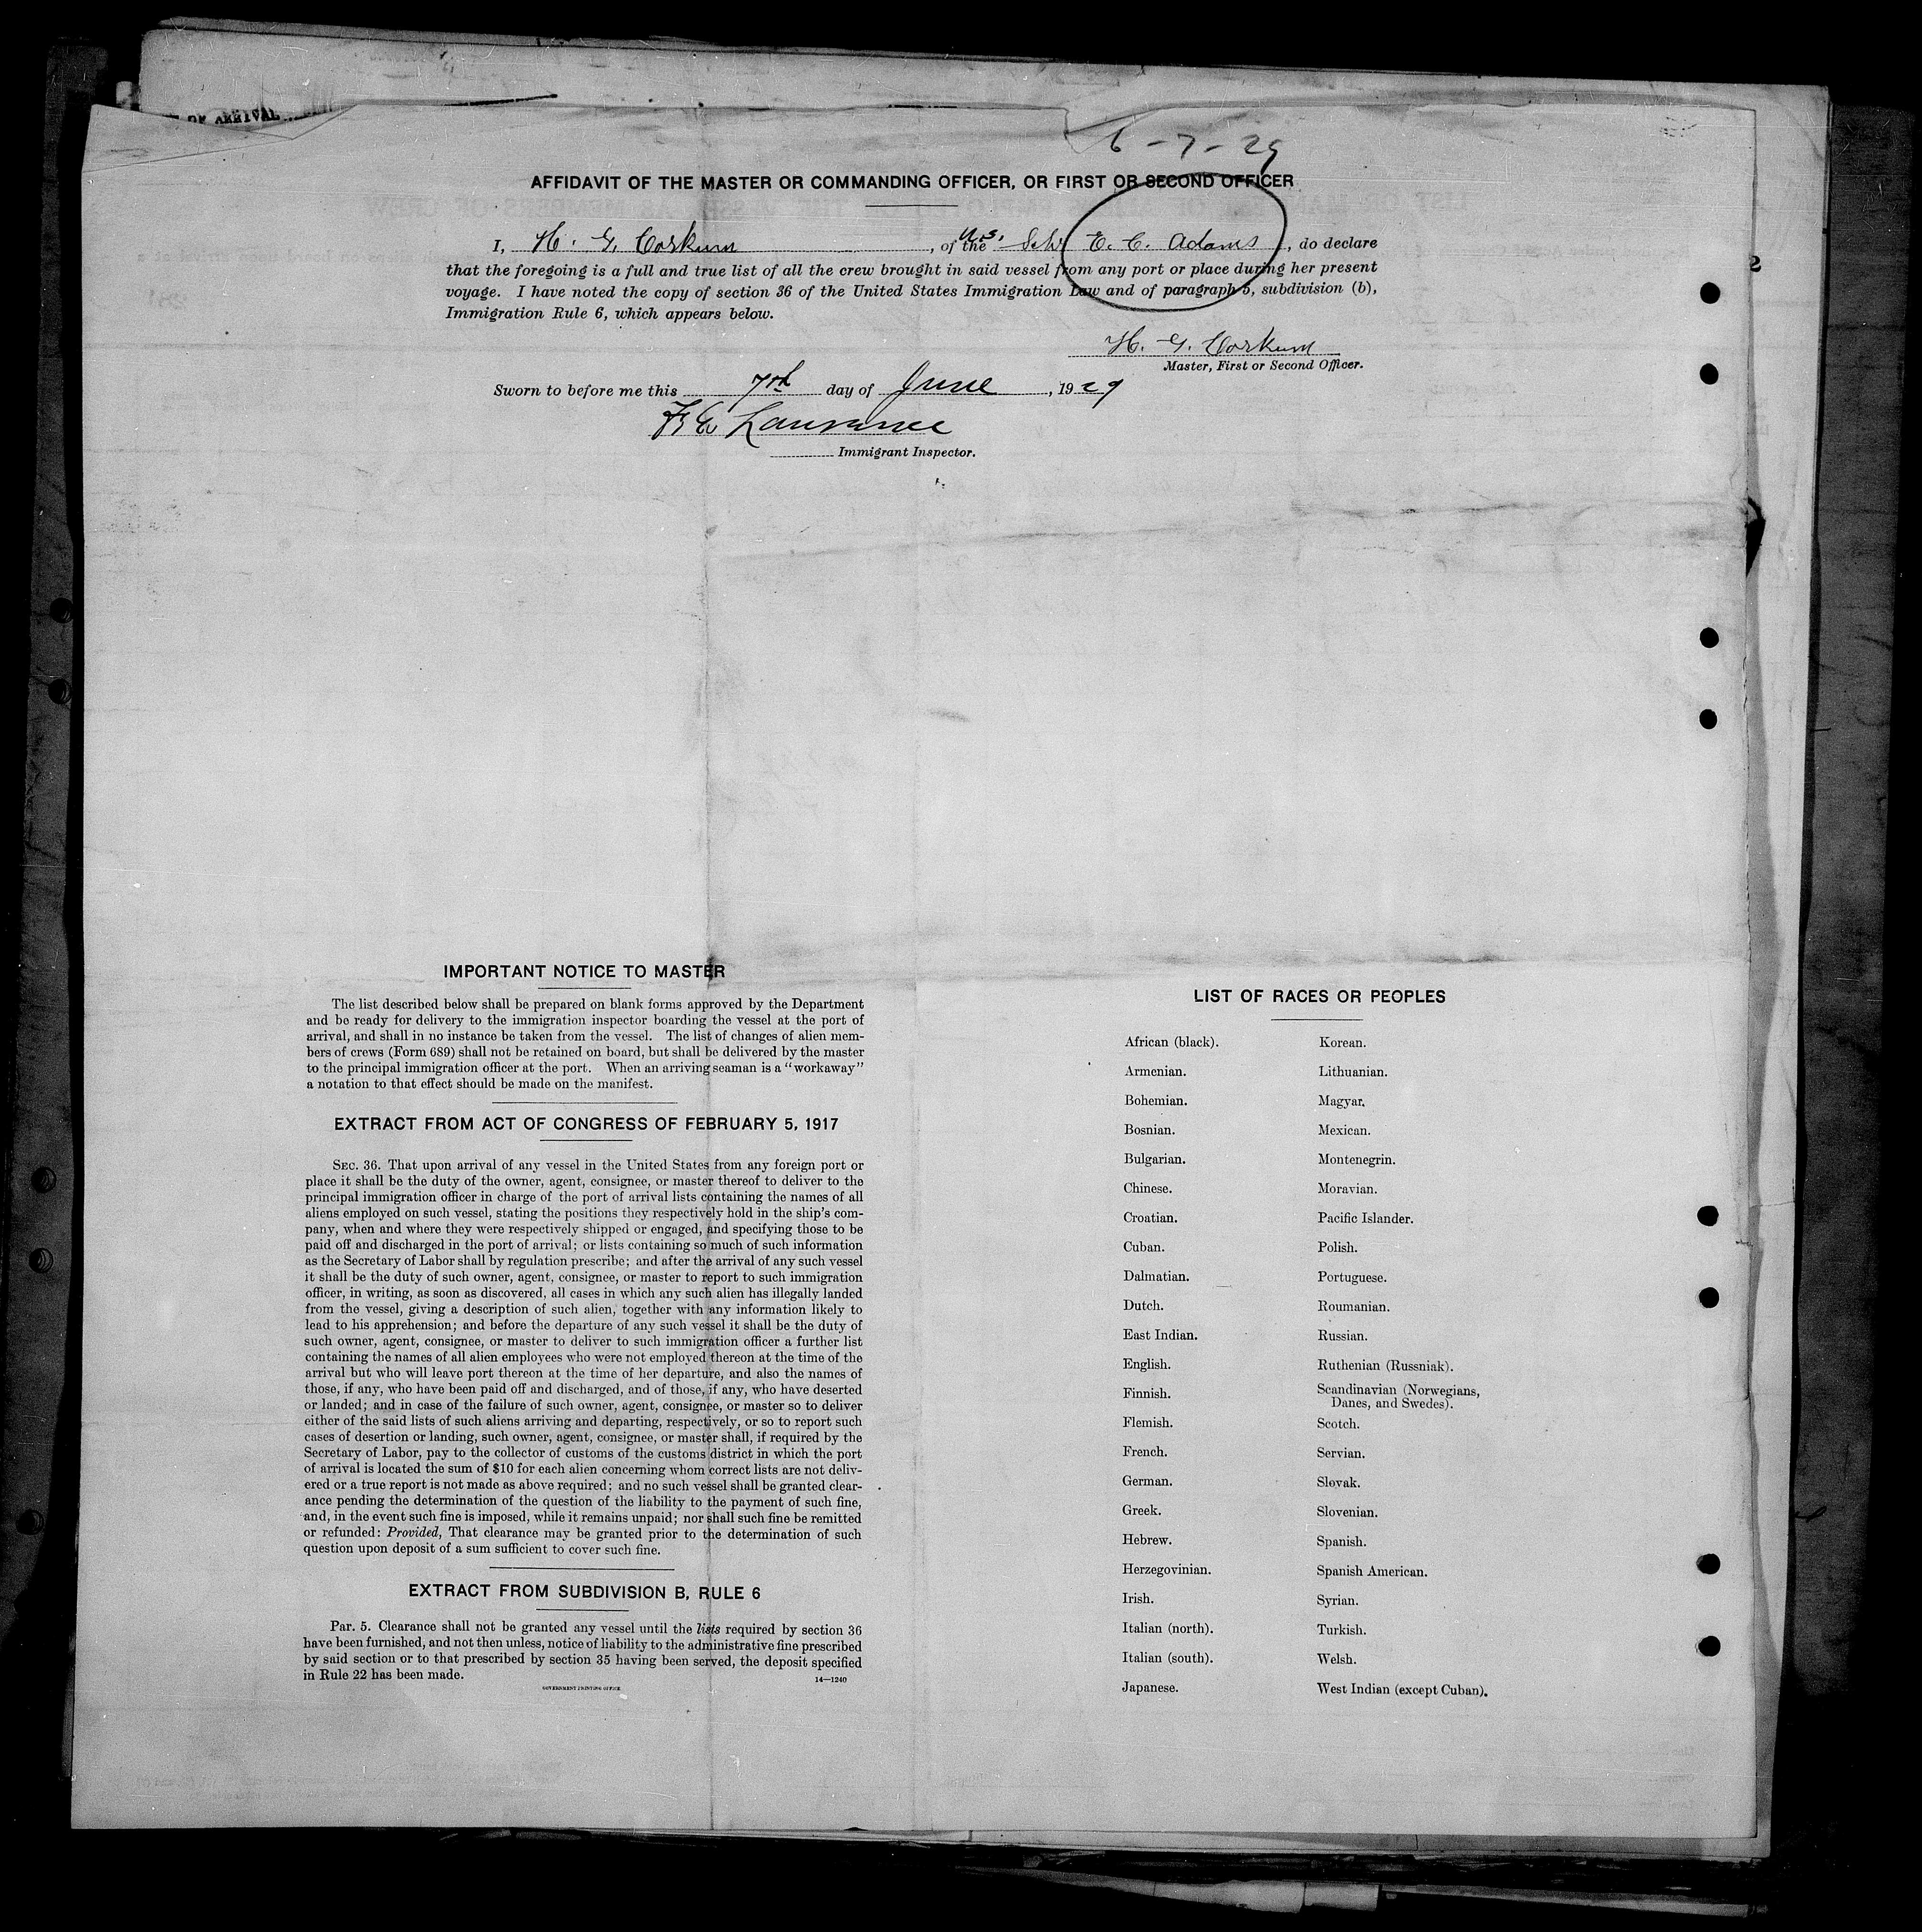 OF ARRIVAL
6-7-29
AFFIDAVIT OF THE MASTER OR COMMANDING OFFICER, OR FIRST OR SECOND OFFICER
I, H. G. Corkum, of the U.S. Schr E. C. Adams, do declare
that the foregoing is a full and true list of all the crew brought in said vessel from any port or place during her present
voyage. I have noted the copy of section 36 of the United States Immigration Law and of paragraph 5, subdivision (b),
Immigration Rule 6, which appears below.
H. G. Corkum
Master, First or Second Officer.
Sworn to before me this 7th day of June, 1929
Immigrant Inspector.
2
IMPORTANT NOTICE TO MASTER
The list described below shall be prepared on blank forms approved by the Department
and be ready for delivery to the immigration inspector boarding the vessel at the port of
arrival, and shall in no instance be taken from the vessel. The list of changes of alien mem-
bers of crews (Form 689) shall not be retained on board, but shall be delivered by the master
to the principal immigration officer at the port. When an arriving seaman is a "workaway"
a notation to that effect should be made on the manifest.
EXTRACT FROM ACT OF CONGRESS OF FEBRUARY 5, 1917
SEC. 36. That upon arrival of any vessel in the United States from any foreign port or
place it shall be the duty of the owner, agent, consignee, or master thereof to deliver to the
principal immigration officer in charge of the port of arrival lists containing the names of all
aliens employed on such vessel, stating the positions they respectively hold in the ship's com-
pany, when and where they were respectively shipped or engaged, and specifying those to be
paid off and discharged in the port of arrival; or lists containing so much of such information
as the Secretary of Labor shall by regulation prescribe; and after the arrival of any such vessel
it shall be the duty of such owner, agent, consignee, or master to report to such immigration
officer, in writing, as soon as discovered, all cases in which any such alien has illegally landed
from the vessel, giving a description of such alien, together with any information likely to
lead to his apprehension; and before the departure of any such vessel it shall be the duty of
such owner, agent, consignee, or master to deliver to such immigration officer a further list
containing the names of all alien employees who were not employed thereon at the time of the
arrival but who will leave port thereon at the time of her departure, and also the names of
those, if any, who have been paid off and discharged, and of those, if any, who have deserted
or landed; and in case of the failure of such owner, agent, consignee, or master so to deliver
either of the said lists of such aliens arriving and departing, respectively, or so to report such
cases of desertion or landing, such owner, agent, consignee, or master shall, if required by the
Secretary of Labor, pay to the collector of customs of the customs district in which the port
of arrival is located the sum of $10 for each alien concerning whom correct lists are not deliv-
ered or a true report is not made as above required; and no such vessel shall be granted clear-
ance pending the determination of the question of the liability to the payment of such fine,
and, in the event such fine is imposed, while it remains unpaid; nor shall such fine be remitted
or refunded: Provided, That clearance may be granted prior to the determination of such
question upon deposit of a sum sufficient to cover such fine.
EXTRACT FROM SUBDIVISION B, RULE 6
Par. 5. Clearance shall not be granted any vessel until the lists required by section 36
have been furnished, and not then unless, notice of liability to the administrative fine prescribed
by said section or to that prescribed by section 35 having been served, the deposit specified
in Rule 22 has been made.
14—1240
GOVERNMENT PRINTING OFFICE
LIST OF RACES OR PEOPLES
African (black).
Armenian.
Bohemian.
Bosnian.
Bulgarian.
Chinese.
Croatian.
Cuban.
Dalmatian.
Dutch.
East Indian.
English.
Finnish.
Flemish.
French.
German.
Greek.
Hebrew.
Herzegovinian.
Irish.
Italian (north).
Italian (south).
Japanese.
Korean.
Lithuanian.
Magyar.
Mexican.
Montenegrin.
Moravian.
Pacific Islander.
Polish.
Portuguese.
Roumanian.
Russian.
Ruthenian (Russniak).
Scandinavian (Norwegians,
Danes, and Swedes).
Scotch.
Servian.
Slovak.
Slovenian.
Spanish.
Spanish American.
Syrian.
Turkish.
Welsh.
West Indian (except Cuban).